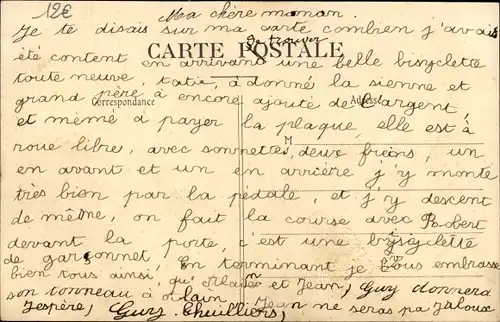 12€
Ma chère maman.
Je te disais sur ma carte combien j'avais
été content en arrivant de trouver une belle bisyclette
CARTE POSTALE
toute neuve, tatie, à donné la sienne et
grand père à encore ajouté de l'argent,
Correspondance Adresse
et même à payer la plaque, elle est à
roue libre, avec sonnettes, deux freins, un
M
en avant et un en arrière j'y monte
très bien par la pédale, et j'y descent
de même, on fait la course avec Robert
devant la porte, c'est une bysiclette
de garçonnet, En terminant je vous embrasse
bien tous ainsi, que et Jean, Guy donnera
son tonneau à Alain Jean ne seras pa jaloux
J'espère, Guy.